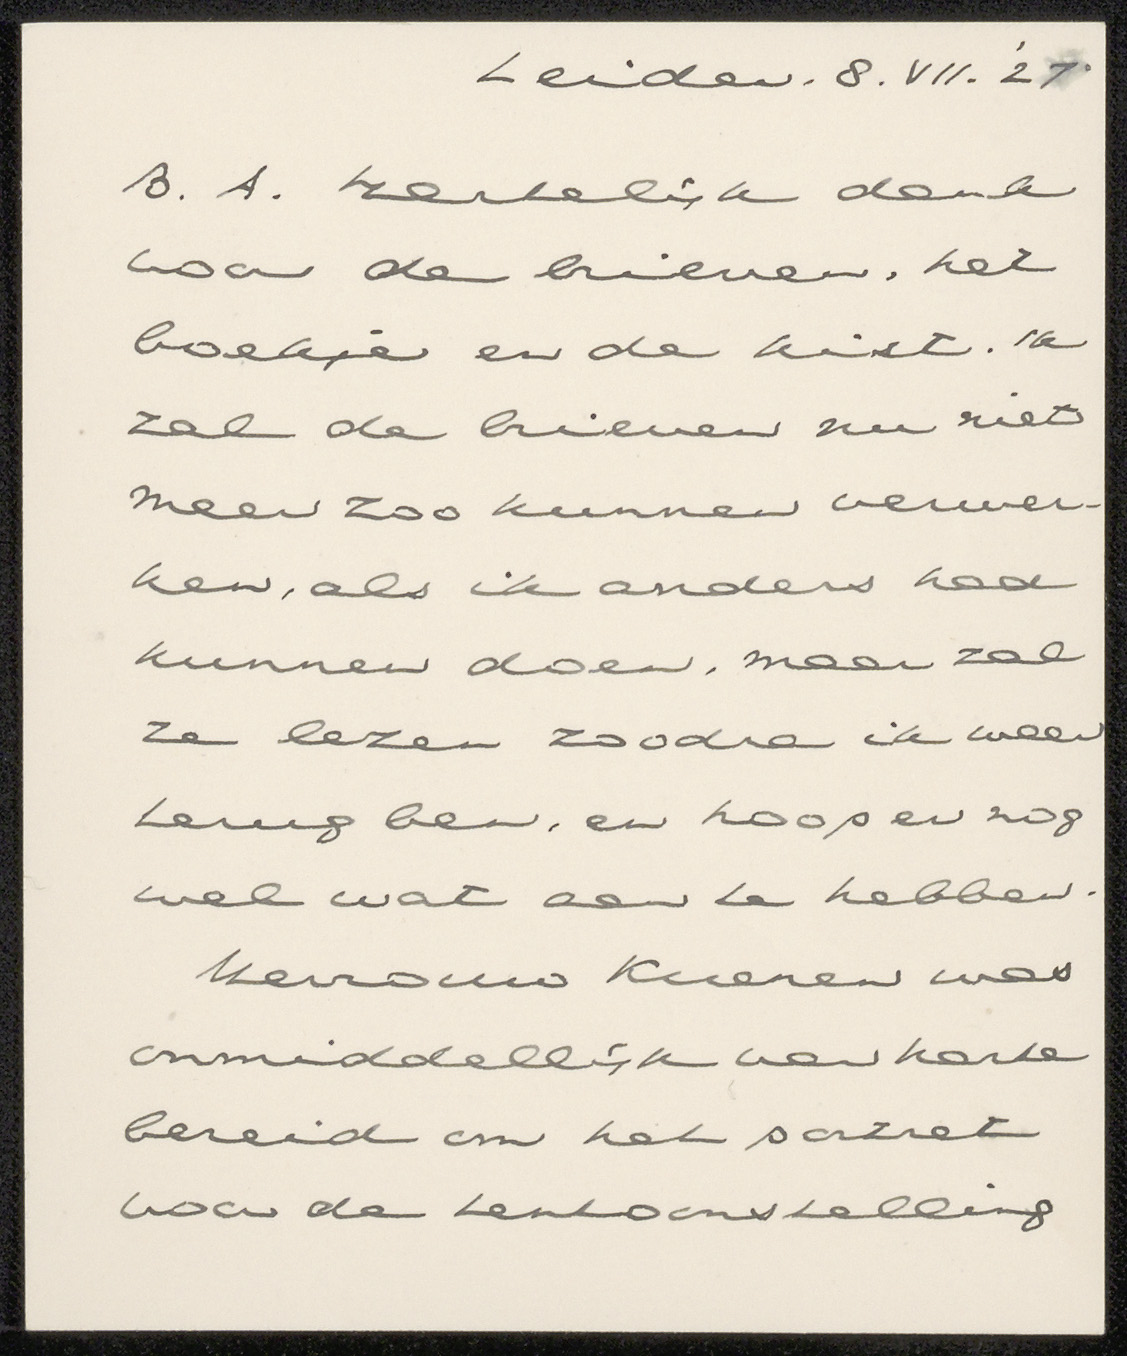 Leiden. 8. VII. '27.
B. A. Hartelijk dank
voor de brieven, het
boekje en de kist. Ik
zal de brieven nu niet
meer zoo kunnen verwer-
ken, als ik anders had
kunnen doen, maar zal
ze lezen zoodra ik weer
terug ben, en hoop er nog
wel wat aan te hebben.
Mevrouw Kuenen was
onmiddellijk van harte
bereid om het portret
voor de tentoonstelling